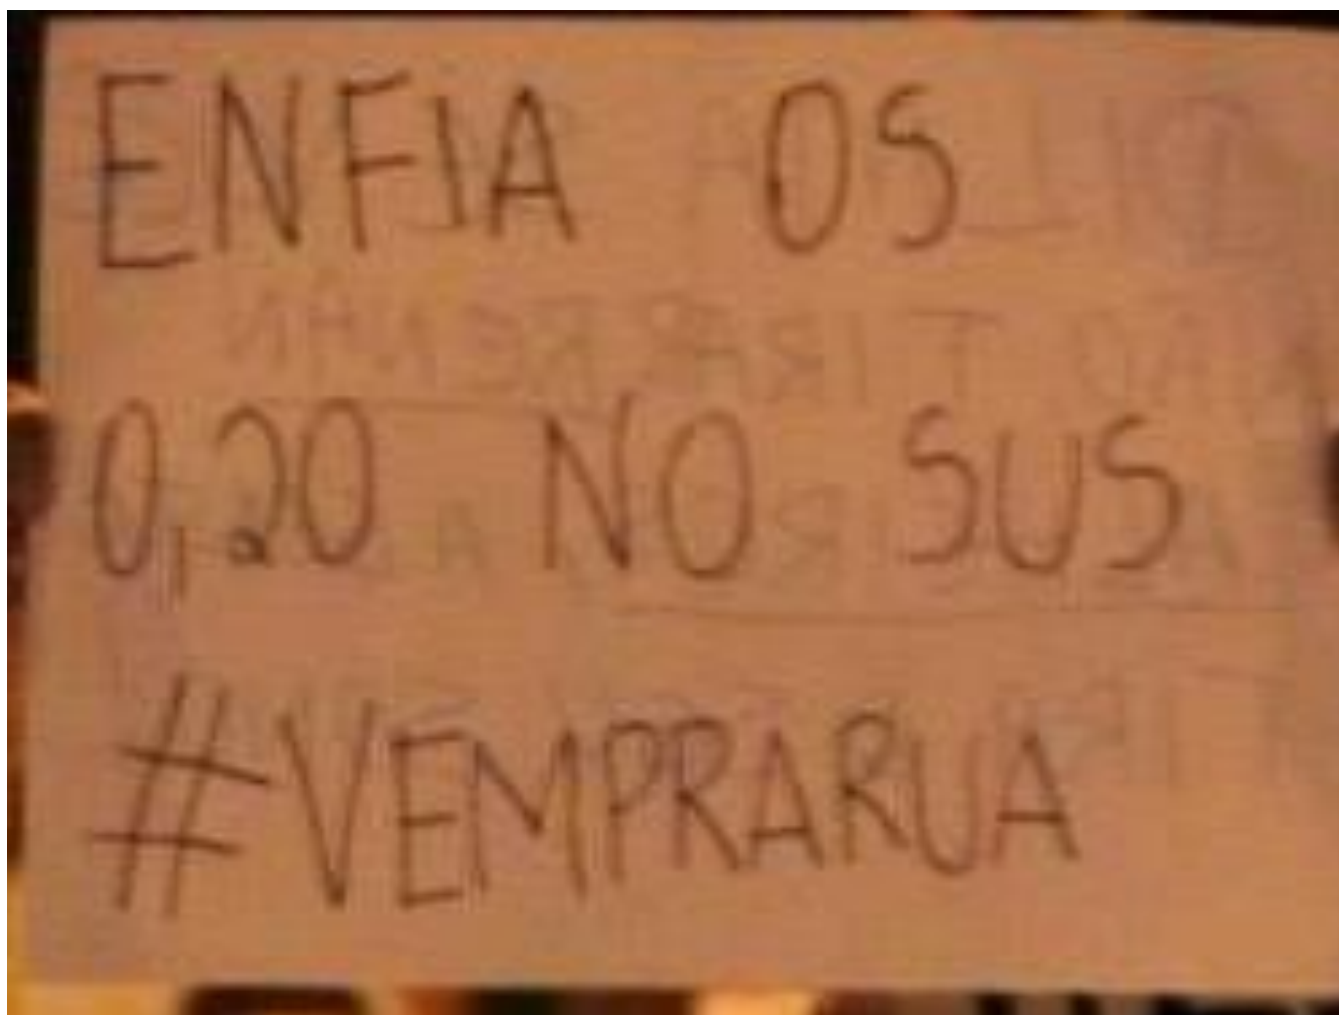 ENFIA OS
0,20 NO SUS
#VEMPRARUA